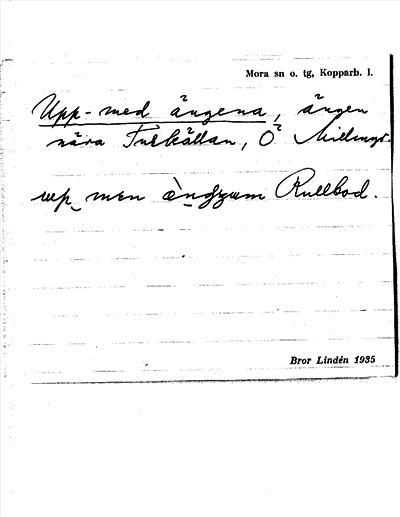 Mora sn o. tg, Kopparb. l.
Upp-med ängena, ängen
nära Tvekällan, Ö
up men Rullbod.
Bror Lindén 1935